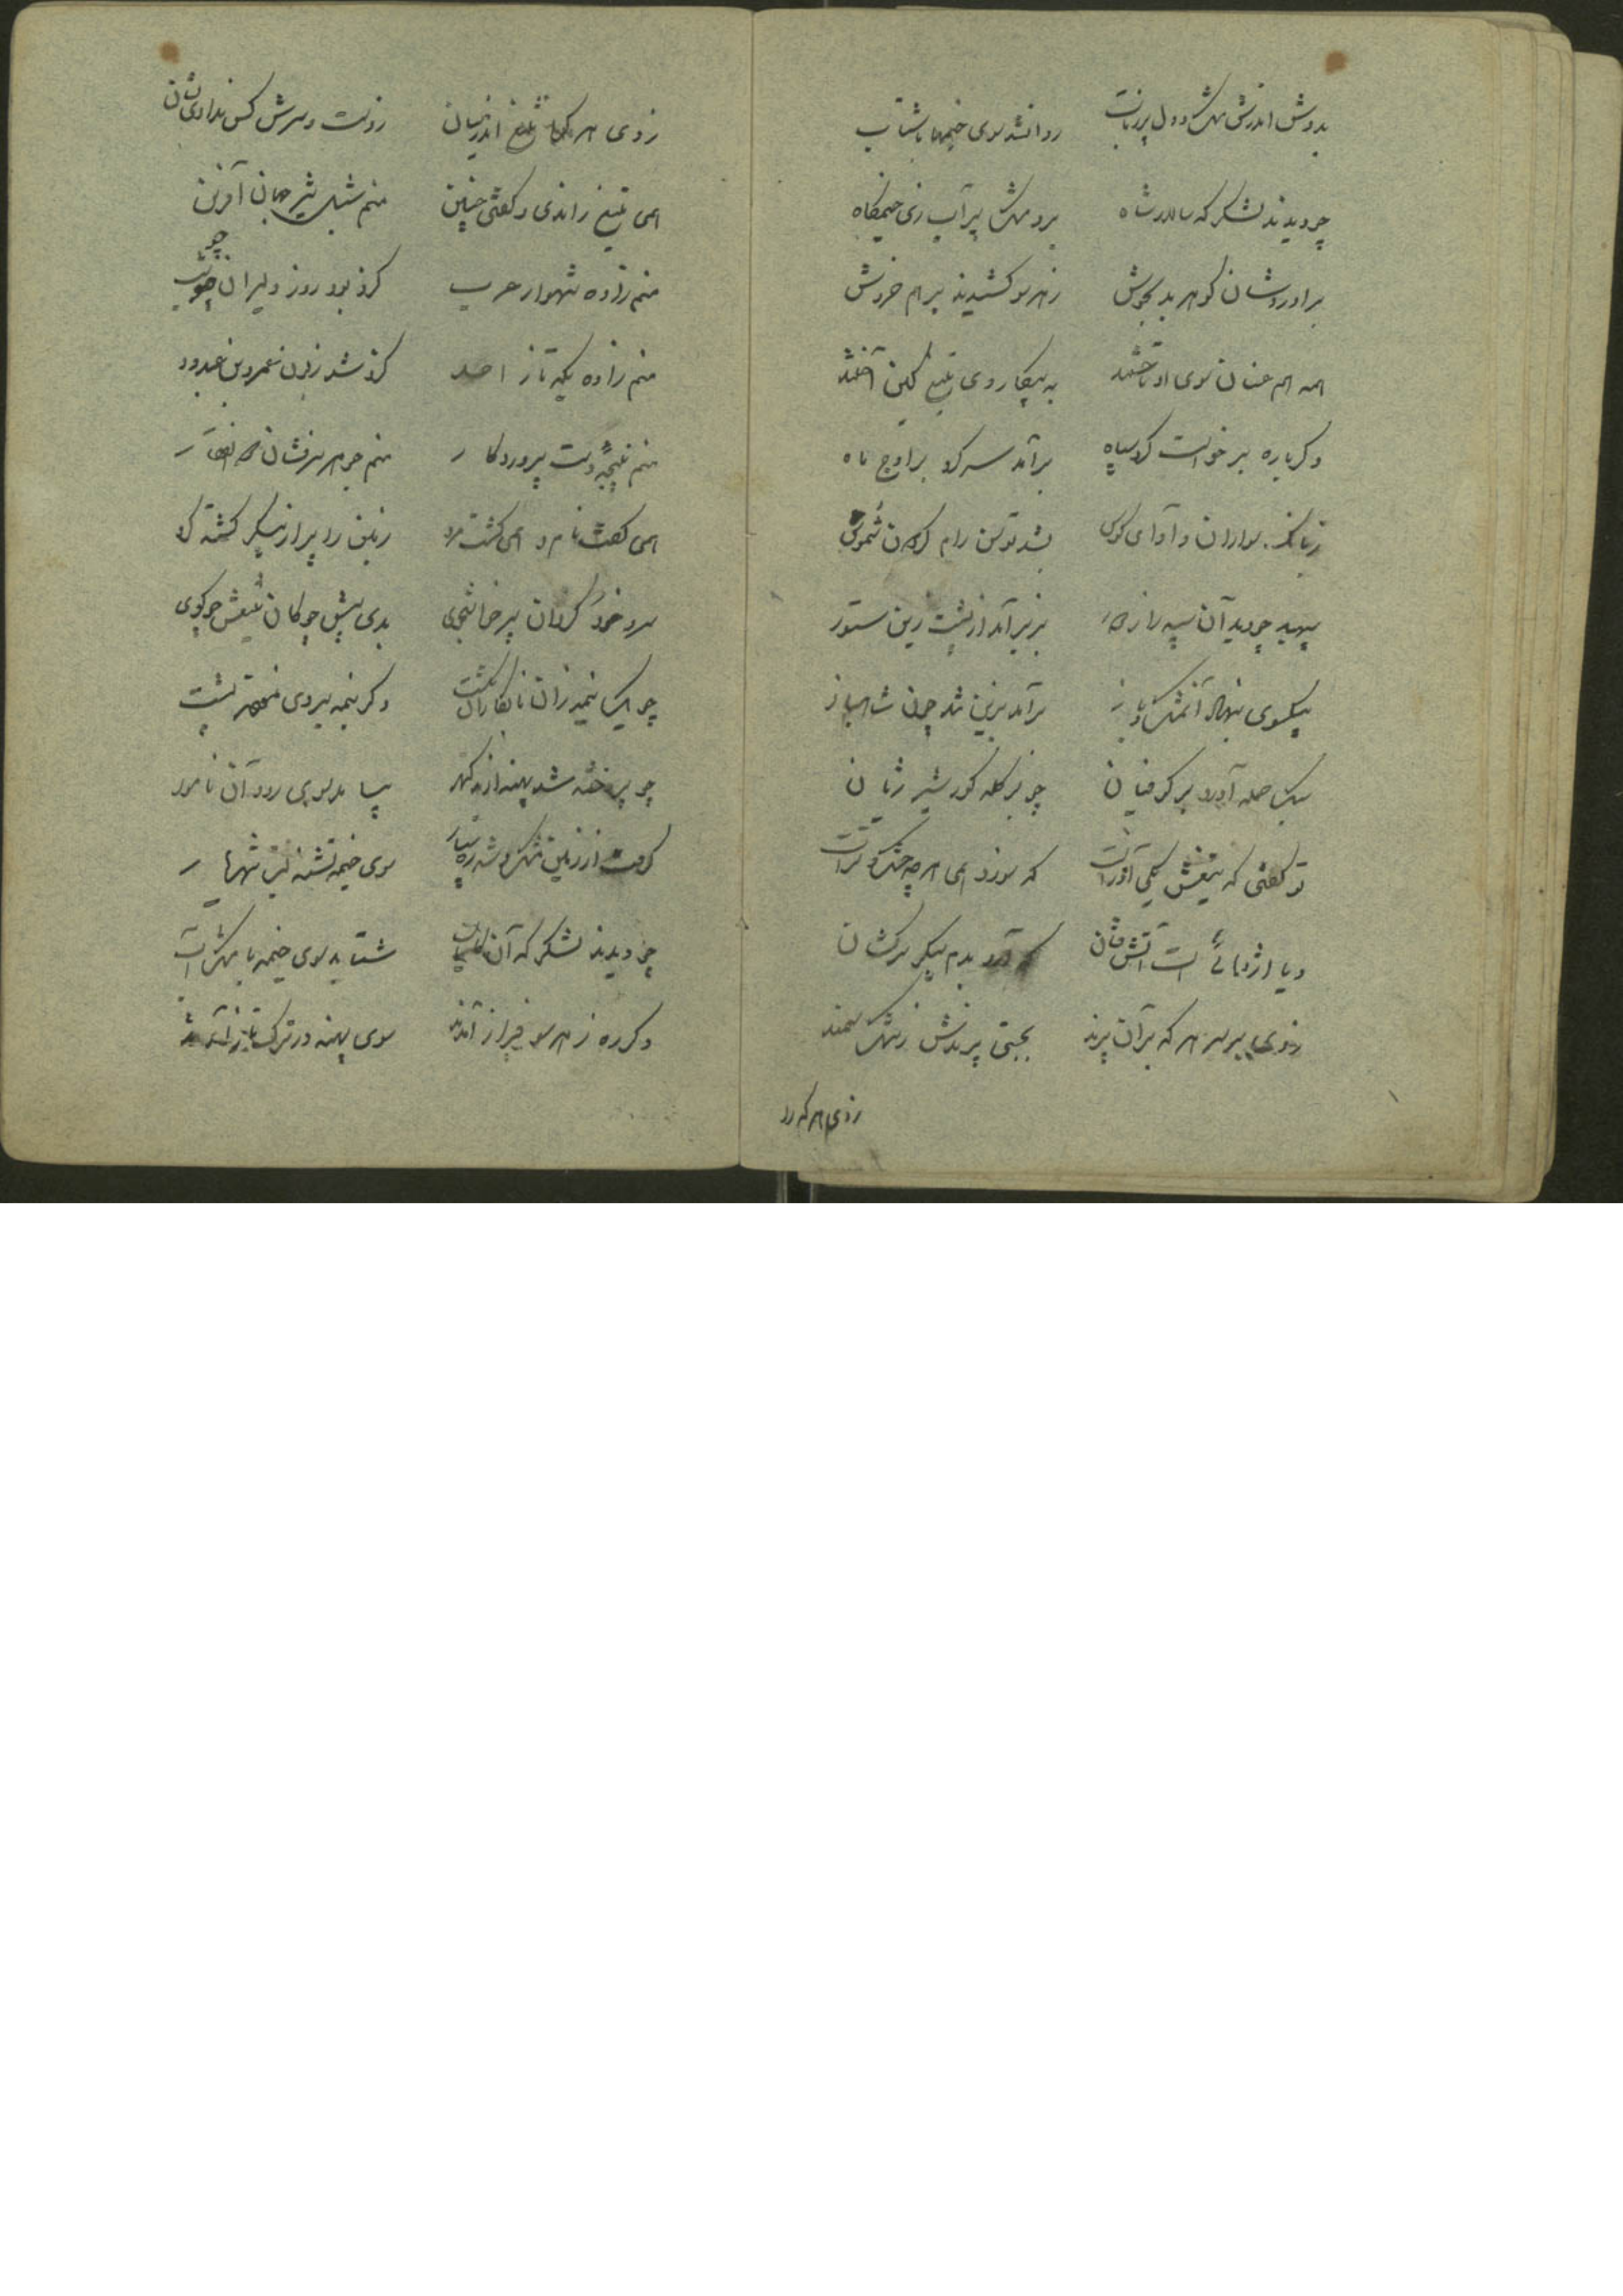 بدوش اندرش مشک و دل پر ز تاب روانشد سوی خیمها با شتاب
چو دیدند لشکر که سالار شاه برد مشک پر آب زی خیمکاه
بر او روشان کوهر بد بجوش ز هر سو کشیدند بر هم خروش
همه هم عنان سوی او تاختند به پیکار وی تیغ کین آختند
دکر باره برخواست کرد سپاه برآمد سر کرد بر اوج ماه
ز بانک سواران و آوای کوس بشد توسن رام کردن شموس
سپهبد چو دید آن سپه را ز دور بزیر آمد از پشت زین ستور
بیکسوی بنهاد آنمشک باز برآمد بزین شد چون شاهباز
یک حمله آورد بر کوفیان چو بر کله کور شیر ژیان
تو کفتی که تیغش یکی آذر است که سوزد همی هر چه خشک و تر است
و یا اژدهائی است آتش فشان که آرد بدم پیکر سرکشان
زدی بر سر هر که بران پرند بجستی پرندش ز تنک سمند
زدی هر که را
زدی هر که را تیغ اندر میان ز دست و سرش کس ندادی نشان
همی تیغ راندی و کفتی چنین منم شبل شیر جهان آفرین
منم زاده شهسوار عرب کزو بود روز دلیران چو شب
منم زاده یکه تاز احد کزو شد زبون عمرو بن عبدود
منم نتیجه دست پروردکار منم جوهر سرفشان ذوالفقار
همی کفت نام و همی کشت مرد زمین را پر از پیکر کشته کرد
سر و خود کردان پرخاشجوی بدی پیش چوکان تیغش چو کوی
چو یک نیمه زان نابکاران بکشت دکر نیمه بر وی نمودند پشت
چو پردخته شد پهنه از کهر بیامد سوی رود آن نامور
کرفت از زمین مشک و شد ره سپار سوی خیمه تشنه لب شهریار
چو دیدند لشکر که آن کامیاب شتابد سوی خیمه با مشک آب
دکر ره ز هر سو فراز آمدند سوی پهنه در ترک تاز آمدند